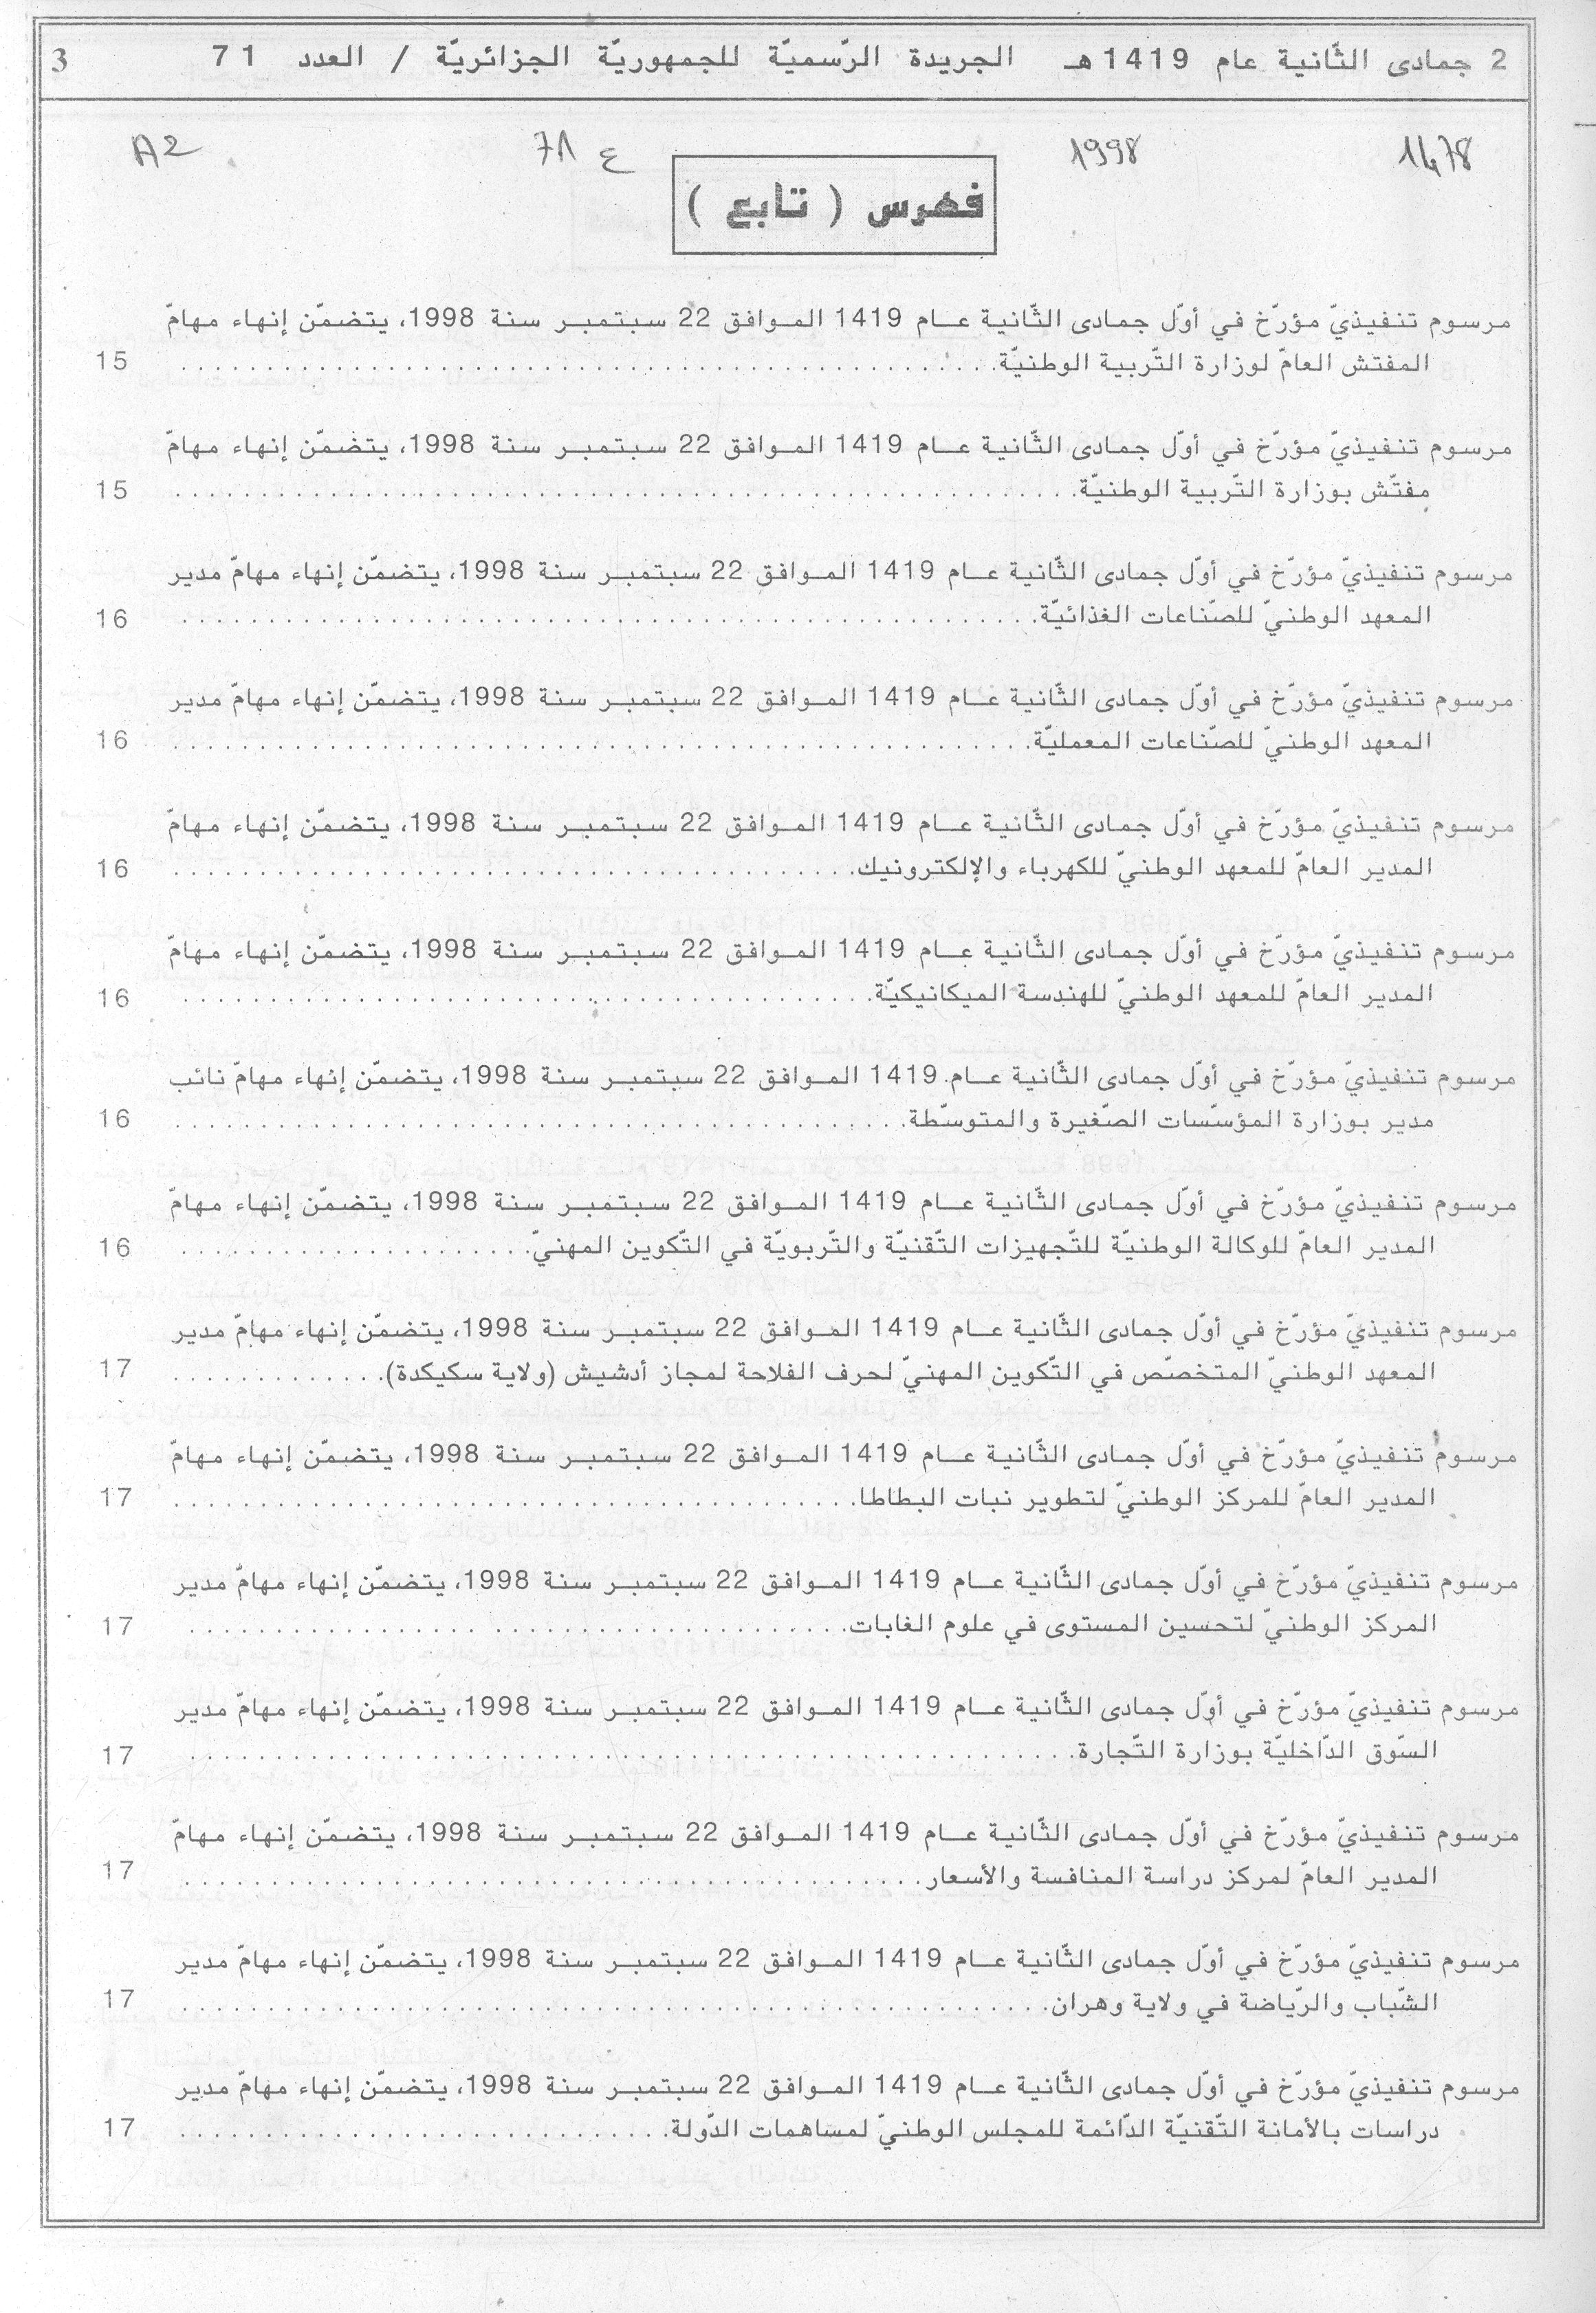 2 جمادى الثّانية عام 1419 هـ الجريدة الرّسميّة للجمهوريّة الجزائريّة / العدد 71 3
1478 1998 ع 71 A2
فهرس ( تابع )
مرسوم تنفيذيّ مؤرّخ في أوّل جمادى الثّانية عــام 1419 المــوافق 22 سبتمبــر سنة 1998، يتضمّن إنهاء مهامّ
المفتش العامّ لوزارة التّربية الوطنيّة. . . . . . . . . . . . . . . . . . . . 15
مرسوم تنفيذيّ مؤرّخ في أوّل جمادى الثّانية عــام 1419 المــوافق 22 سبتمبــر سنة 1998، يتضمّن إنهاء مهامّ
مفتّش بوزارة التّربية الوطنيّة. . . . . . . . . . . . . . . . . . . . 15
مرسوم تنفيذيّ مؤرّخ في أوّل جمادى الثّانية عــام 1419 المــوافق 22 سبتمبــر سنة 1998، يتضمّن إنهاء مهامّ مدير
المعهد الوطنيّ للصّناعات الغذائيّة. . . . . . . . . . . . . . . . . . . . 16
مرسوم تنفيذيّ مؤرّخ في أوّل جمادى الثّانية عــام 1419 المــوافق 22 سبتمبــر سنة 1998، يتضمّن إنهاء مهامّ مدير
المعهد الوطنيّ للصّناعات المعمليّة. . . . . . . . . . . . . . . . . . . . 16
مرسوم تنفيذيّ مؤرّخ في أوّل جمادى الثّانية عــام 1419 المــوافق 22 سبتمبــر سنة 1998، يتضمّن إنهاء مهامّ
المدير العامّ للمعهد الوطنيّ للكهرباء والإلكترونيك. . . . . . . . . . . . . . . . . . . . 16
مرسوم تنفيذيّ مؤرّخ في أوّل جمادى الثّانية عــام 1419 المــوافق 22 سبتمبــر سنة 1998، يتضمّن إنهاء مهامّ
المدير العامّ للمعهد الوطنيّ للهندسة الميكانيكيّة. . . . . . . . . . . . . . . . . . . . 16
مرسوم تنفيذيّ مؤرّخ في أوّل جمادى الثّانية عــام 1419 المــوافق 22 سبتمبــر سنة 1998، يتضمّن إنهاء مهامّ نائب
مدير بوزارة المؤسّسات الصّغيرة والمتوسّطة. . . . . . . . . . . . . . . . . . . . 16
مرسوم تنفيذيّ مؤرّخ في أوّل جمادى الثّانية عــام 1419 المــوافق 22 سبتمبــر سنة 1998، يتضمّن إنهاء مهامّ
المدير العامّ للوكالة الوطنيّة للتّجهيزات التّقنيّة والتّربويّة في التّكوين المهنيّ. . . . . . . . . . . . . . . . . . . . 16
مرسوم تنفيذيّ مؤرّخ في أوّل جمادى الثّانية عــام 1419 المــوافق 22 سبتمبــر سنة 1998، يتضمّن إنهاء مهامّ مدير
المعهد الوطنيّ المتخصّص في التّكوين المهنيّ لحرف الفلاحة لمجاز أدشيش (ولاية سكيكدة). . . . . . . . . . . . . 17
مرسوم تنفيذيّ مؤرّخ في أوّل جمادى الثّانية عــام 1419 المــوافق 22 سبتمبــر سنة 1998، يتضمّن إنهاء مهامّ
المدير العامّ للمركز الوطنيّ لتطوير نبات البطاطا. . . . . . . . . . . . . . . . . . . . 17
مرسوم تنفيذيّ مؤرّخ في أوّل جمادى الثّانية عــام 1419 المــوافق 22 سبتمبــر سنة 1998، يتضمّن إنهاء مهامّ مدير
المركز الوطنيّ لتحسين المستوى في علوم الغابات. . . . . . . . . . . . . . . . . . . . 17
مرسوم تنفيذيّ مؤرّخ في أوّل جمادى الثّانية عــام 1419 المــوافق 22 سبتمبــر سنة 1998، يتضمّن إنهاء مهامّ مدير
السّوق الدّاخليّة بوزارة التّجارة. . . . . . . . . . . . . . . . . . . . 17
مرسوم تنفيذيّ مؤرّخ في أوّل جمادى الثّانية عــام 1419 المــوافق 22 سبتمبــر سنة 1998، يتضمّن إنهاء مهامّ
المدير العامّ لمركز دراسة المنافسة والأسعار. . . . . . . . . . . . . . . . . . . . 17
مرسوم تنفيذيّ مؤرّخ في أوّل جمادى الثّانية عــام 1419 المــوافق 22 سبتمبــر سنة 1998، يتضمّن إنهاء مهامّ مدير
الشّباب والرّياضة في ولاية وهران. . . . . . . . . . . . . . . . . . . . 17
مرسوم تنفيذيّ مؤرّخ في أوّل جمادى الثّانية عــام 1419 المــوافق 22 سبتمبــر سنة 1998، يتضمّن إنهاء مهامّ مدير
دراسات بالأمانة التّقنيّة الدّائمة للمجلس الوطنيّ لمساهمات الدّولة. . . . . . . . . . . . . . . . . . . . 17